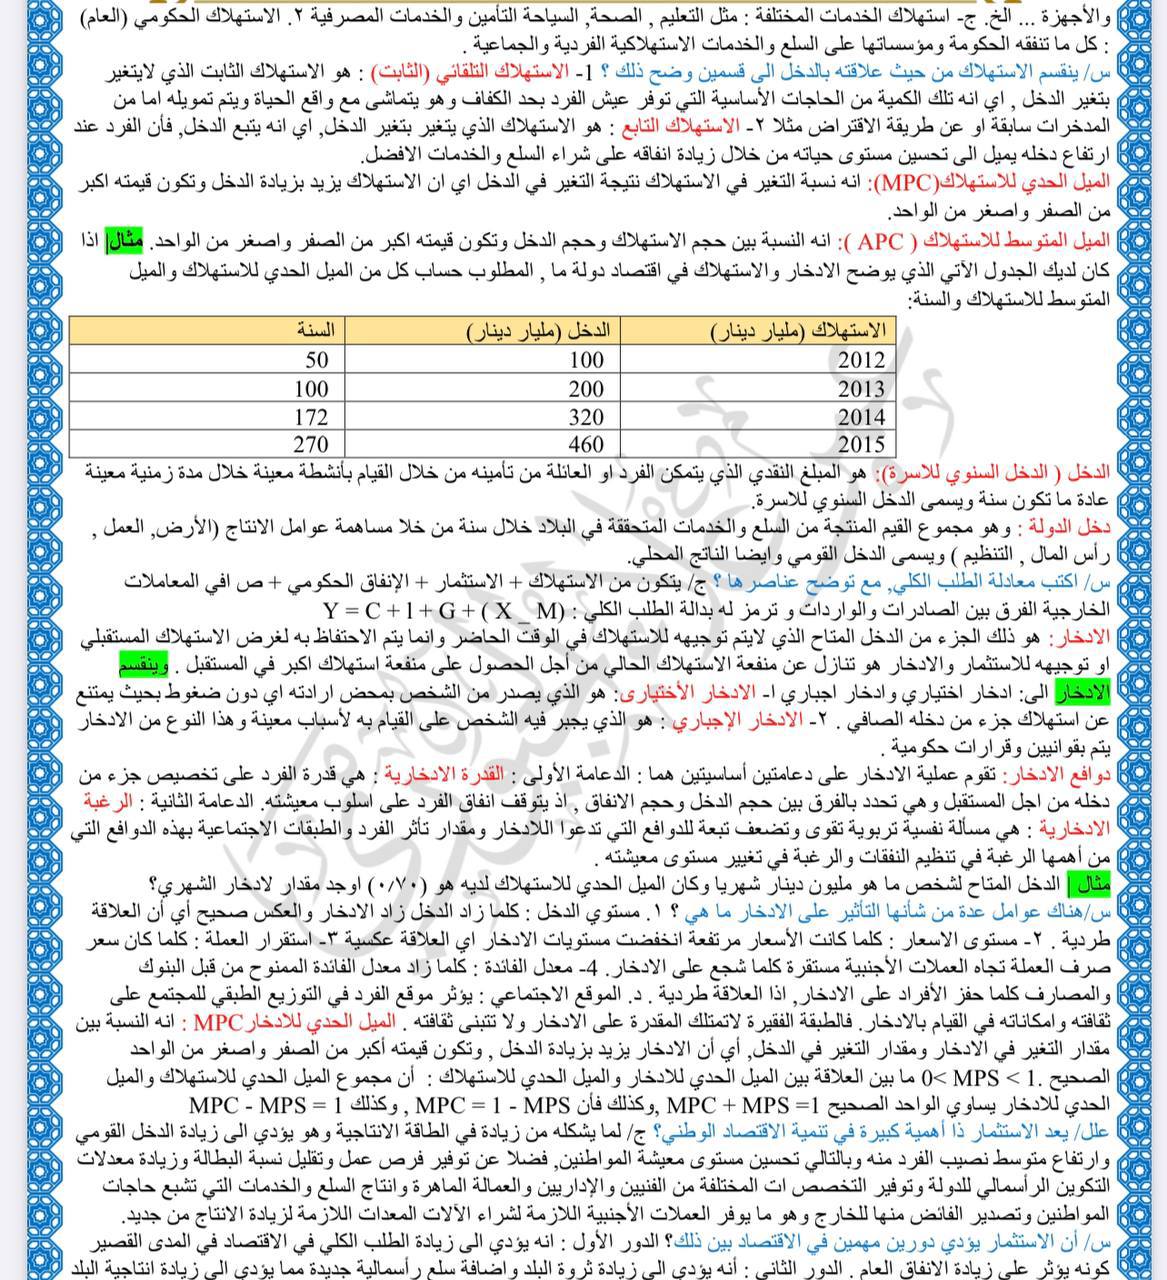 والأجهزة ... الخ. ج- استهلاك الخدمات المختلفة : مثل التعليم , الصحة, السياحة التأمين والخدمات المصرفية ٢. الاستهلاك الحكومي (العام)
: كل ما تنفقه الحكومة ومؤسساتها على السلع والخدمات الاستهلاكية الفردية والجماعية .
س/ ينقسم الاستهلاك من حيث علاقته بالدخل الى قسمين وضح ذلك ؟ 1- الاستهلاك التلقائي (الثابت) : هو الاستهلاك الثابت الذي لايتغير
بتغير الدخل , اي انه تلك الكمية من الحاجات الأساسية التي توفر عيش الفرد بحد الكفاف وهو يتماشى مع واقع الحياة ويتم تمويله اما من
المدخرات سابقة او عن طريقة الاقتراض مثلا ٢- الاستهلاك التابع : هو الاستهلاك الذي يتغير بتغير الدخل, اي انه يتبع الدخل, فأن الفرد عند
ارتفاع دخله يميل الى تحسين مستوى حياته من خلال زيادة انفاقه على شراء السلع والخدمات الافضل.
الميل الحدي للاستهلاك(MPC): انه نسبة التغير في الاستهلاك نتيجة التغير في الدخل اي ان الاستهلاك يزيد بزيادة الدخل وتكون قيمته اكبر
من الصفر واصغر من الواحد.
الميل المتوسط للاستهلاك ( APC ): انه النسبة بين حجم الاستهلاك وحجم الدخل وتكون قيمته اكبر من الصفر واصغر من الواحد. مثال| اذا
كان لديك الجدول الآتي الذي يوضح الادخار والاستهلاك في اقتصاد دولة ما , المطلوب حساب كل من الميل الحدي للاستهلاك والميل
المتوسط للاستهلاك والسنة:
الاستهلاك (مليار دينار) الدخل (مليار دينار) السنة
2012 100 50
2013 200 100
2014 320 172
2015 460 270
الدخل ( الدخل السنوي للاسرة): هو المبلغ النقدي الذي يتمكن الفرد او العائلة من تأمينه من خلال القيام بأنشطة معينة خلال مدة زمنية معينة
عادة ما تكون سنة ويسمى الدخل السنوي للاسرة.
دخل الدولة : وهو مجموع القيم المنتجة من السلع والخدمات المتحققة في البلاد خلال سنة من خلا مساهمة عوامل الانتاج (الأرض, العمل ,
رأس المال , التنظيم ) ويسمى الدخل القومي وايضا الناتج المحلي.
س/ اكتب معادلة الطلب الكلي, مع توضح عناصر ها ؟ ج/ يتكون من الاستهلاك + الاستثمار + الإنفاق الحكومي + ص افي المعاملات
الخارجية الفرق بين الصادرات والواردات و ترمز له بدالة الطلب الكلي : Y = C + 1 + G + ( X _ M)
الادخار : هو ذلك الجزء من الدخل المتاح الذي لايتم توجيهه للاستهلاك في الوقت الحاضر وانما يتم الاحتفاظ به لغرض الاستهلاك المستقبلي
او توجيهه للاستثمار والادخار هو تنازل عن منفعة الاستهلاك الحالي من أجل الحصول على منفعة استهلاك اكبر في المستقبل . وينقسم
الادخار الى: ادخار اختياري وادخار اجباري ا- الادخار الأختيارى: هو الذي يصدر من الشخص بمحض ارادته اي دون ضغوط بحيث يمتنع
عن استهلاك جزء من دخله الصافي . ٢- الادخار الإجباري : هو الذي يجبر فيه الشخص على القيام به لأسباب معينة وهذا النوع من الادخار
يتم بقوانيين وقرارات حكومية .
دوافع الادخار: تقوم عملية الادخار على دعامتين أساسيتين هما : الدعامة الأولى : القدرة الادخارية : هي قدرة الفرد على تخصيص جزء من
دخله من اجل المستقبل وهي تحدد بالفرق بين حجم الدخل وحجم الانفاق , اذ يتوقف انفاق الفرد على اسلوب معيشته. الدعامة الثانية : الرغبة
الادخارية : هي مسألة نفسية تربوية تقوى وتضعف تبعة للدوافع التي تدعوا اللادخار ومقدار تأثر الفرد والطبقات الاجتماعية بهذه الدوافع التي
من أهمها الرغبة في تنظيم النفقات والرغبة في تغيير مستوى معيشته .
مثال | الدخل المتاح لشخص ما هو مليون دينار شهريا وكان الميل الحدي للاستهلاك لديه هو (٠/٧٠) اوجد مقدار لادخار الشهري؟
س/هناك عوامل عدة من شأنها التأثير على الادخار ما هي ؟ ١. مستوي الدخل : كلما زاد الدخل زاد الادخار والعكس صحيح أي أن العلاقة
طردية . ٢- مستوى الاسعار : كلما كانت الأسعار مرتفعة انخفضت مستويات الادخار اي العلاقة عكسية ٣- استقرار العملة : كلما كان سعر
صرف العملة تجاه العملات الأجنبية مستقرة كلما شجع على الادخار. 4- معدل الفائدة : كلما زاد معدل الفائدة الممنوح من قبل البنوك
والمصارف كلما حفز الأفراد على الادخار, اذا العلاقة طردية . د. الموقع الاجتماعي : يؤثر موقع الفرد في التوزيع الطبقي للمجتمع على
ثقافته وامكاناته في القيام بالادخار. فالطبقة الفقيرة لاتمتلك المقدرة على الادخار ولا تتبنى ثقافته . الميل الحدي للادخارMPC : انه النسبة بين
مقدار التغير في الادخار ومقدار التغير في الدخل, أي أن الادخار يزيد بزيادة الدخل , وتكون قيمته أكبر من الصفر واصغر من الواحد
الصحيح .0< MPS < 1 ما بين العلاقة بين الميل الحدي للادخار والميل الحدي للاستهلاك : أن مجموع الميل الحدي للاستهلاك والميل
الحدي للادخار يساوي الواحد الصحيح MPC + MPS =1, وكذلك فأن MPC = 1 - MPS , وكذلك MPC - MPS = 1
علل/ يعد الاستثمار ذا أهمية كبيرة في تنمية الاقتصاد الوطني؟ ج/ لما يشكله من زيادة في الطاقة الانتاجية وهو يؤدي الى زيادة الدخل القومي
وارتفاع متوسط نصيب الفرد منه وبالتالي تحسين مستوى معيشة المواطنين, فضلا عن توفير فرص عمل وتقليل نسبة البطالة وزيادة معدلات
التكوين الرأسمالي للدولة وتوفير التخصص ات المختلفة من الفنيين والإداريين والعمالة الماهرة وانتاج السلع والخدمات التي تشبع حاجات
المواطنين وتصدير الفائض منها للخارج وهو ما يوفر العملات الأجنبية اللازمة لشراء الآلات المعدات اللازمة لزيادة الانتاج من جديد.
س/ أن الاستثمار يؤدي دورين مهمين في الاقتصاد بين ذلك؟ الدور الأول : انه يؤدي الى زيادة الطلب الكلي في الاقتصاد في المدى القصير
كونه يؤثر على زيادة الانفاق العام . الدور الثاني : أنه يؤدي الى زيادة ثروة البلد واضافة سلع رأسمالية جديدة مما يؤدي الى زيادة انتاجية البلد